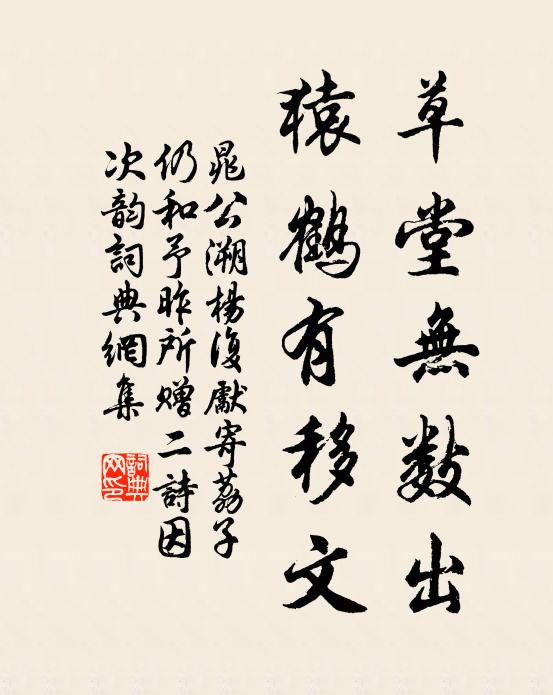 草堂無数出
猿鶴有移文
晁公溯楊復獻寄荔子
仍和予昨所贈二詩因
次韵詞典網集
詞典網印